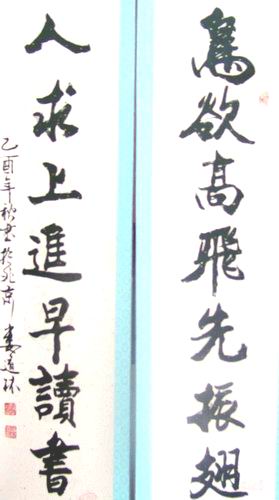 鳥欲高飛先振翅
人求上進早讀書
乙酉年秋書於北京 婁道林